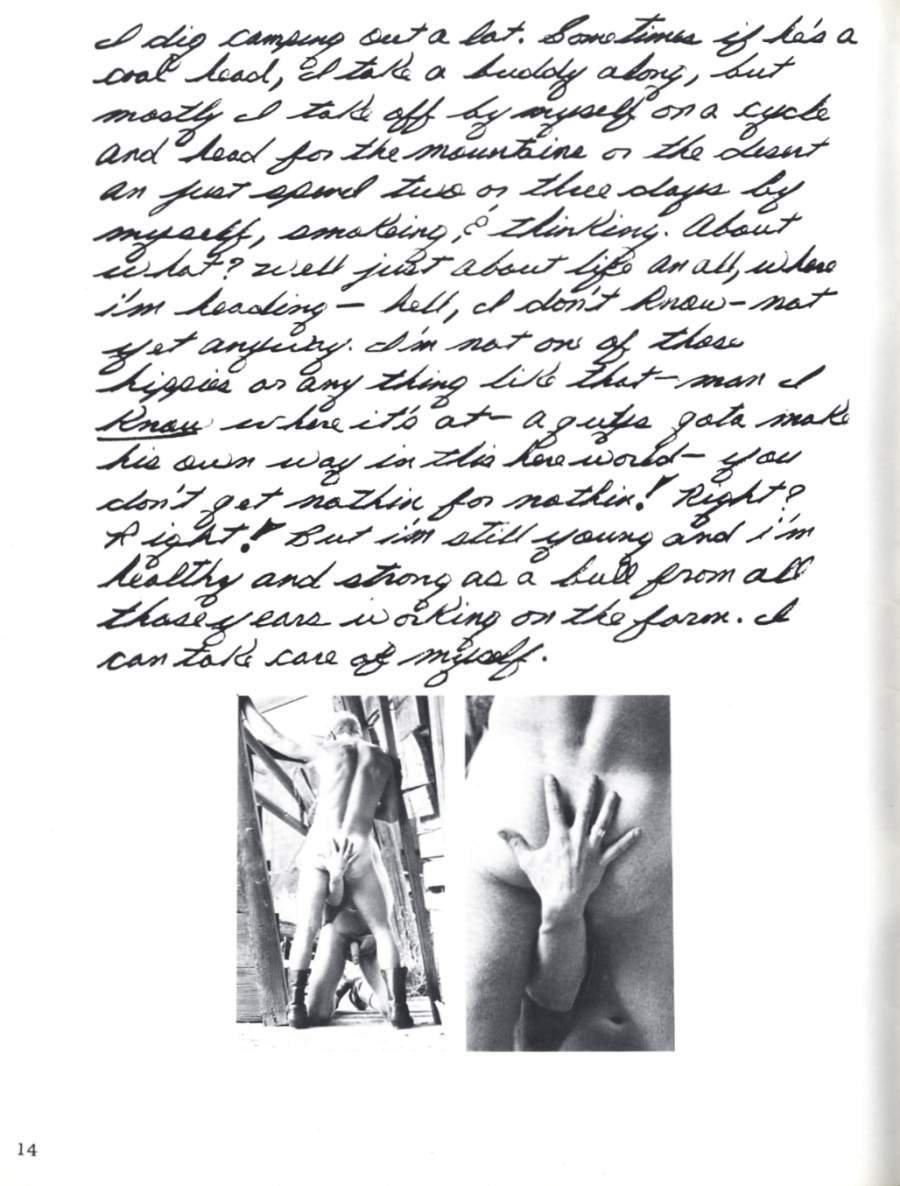 I dig camping out a lot. Sometimes if he's a
cool head, I take a buddy along, but
mostly I take off by myself on a cycle
and head for the mountains or the desert
an just spend two or three days by
myself, smokeing, & thinking. About
what? Well just about life an all, where
i'm heading — hell, I don't know — not
yet anyway. I'm not one of those
hippies or any thing like that — man I
know where it's at — a guys gota make
his own way in this here world — you
don't get nothin for nothin! Right?
Right! But i'm still young and i'm
healthy and strong as a bull from all
those years working on the farm. I
can take care of myself.
14